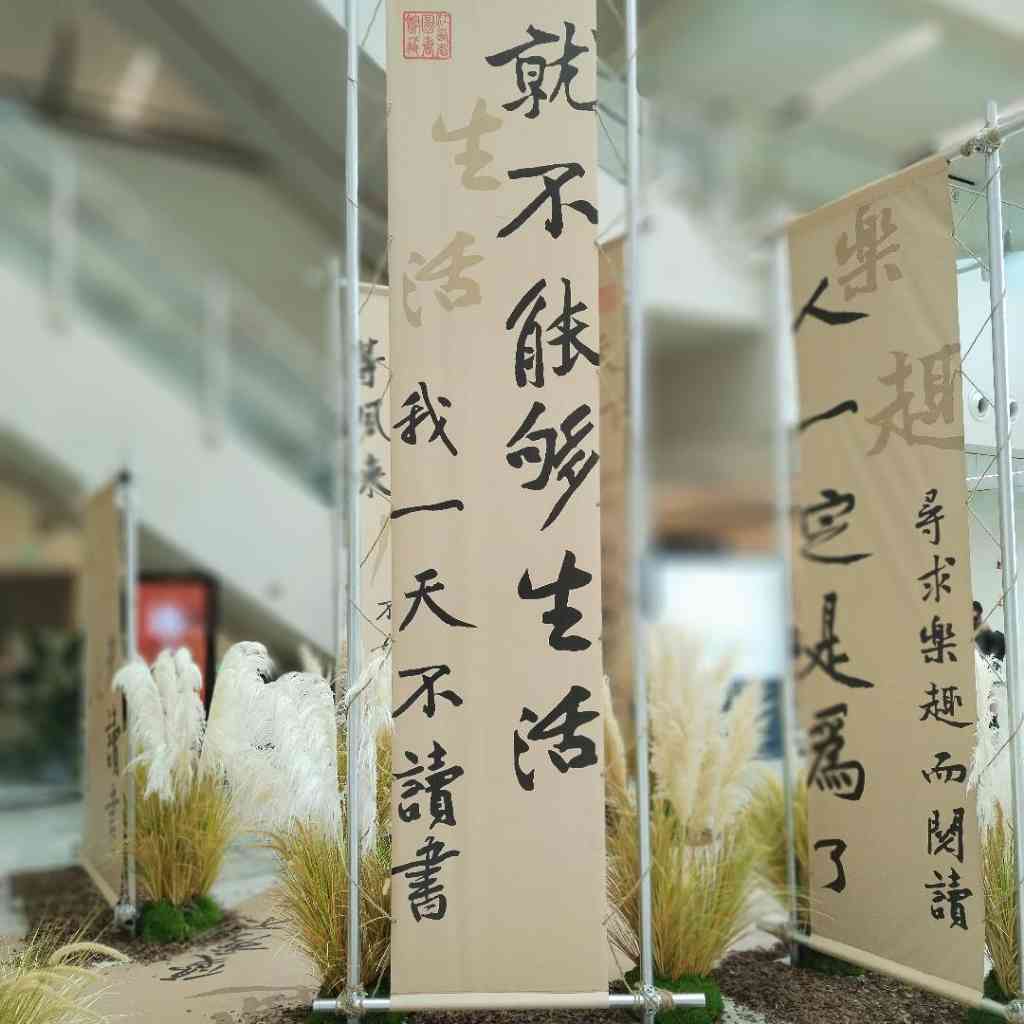 生活
我一天不讀書
就不能够生活
樂趣
人一定是爲了
尋求樂趣而閱讀
等風来